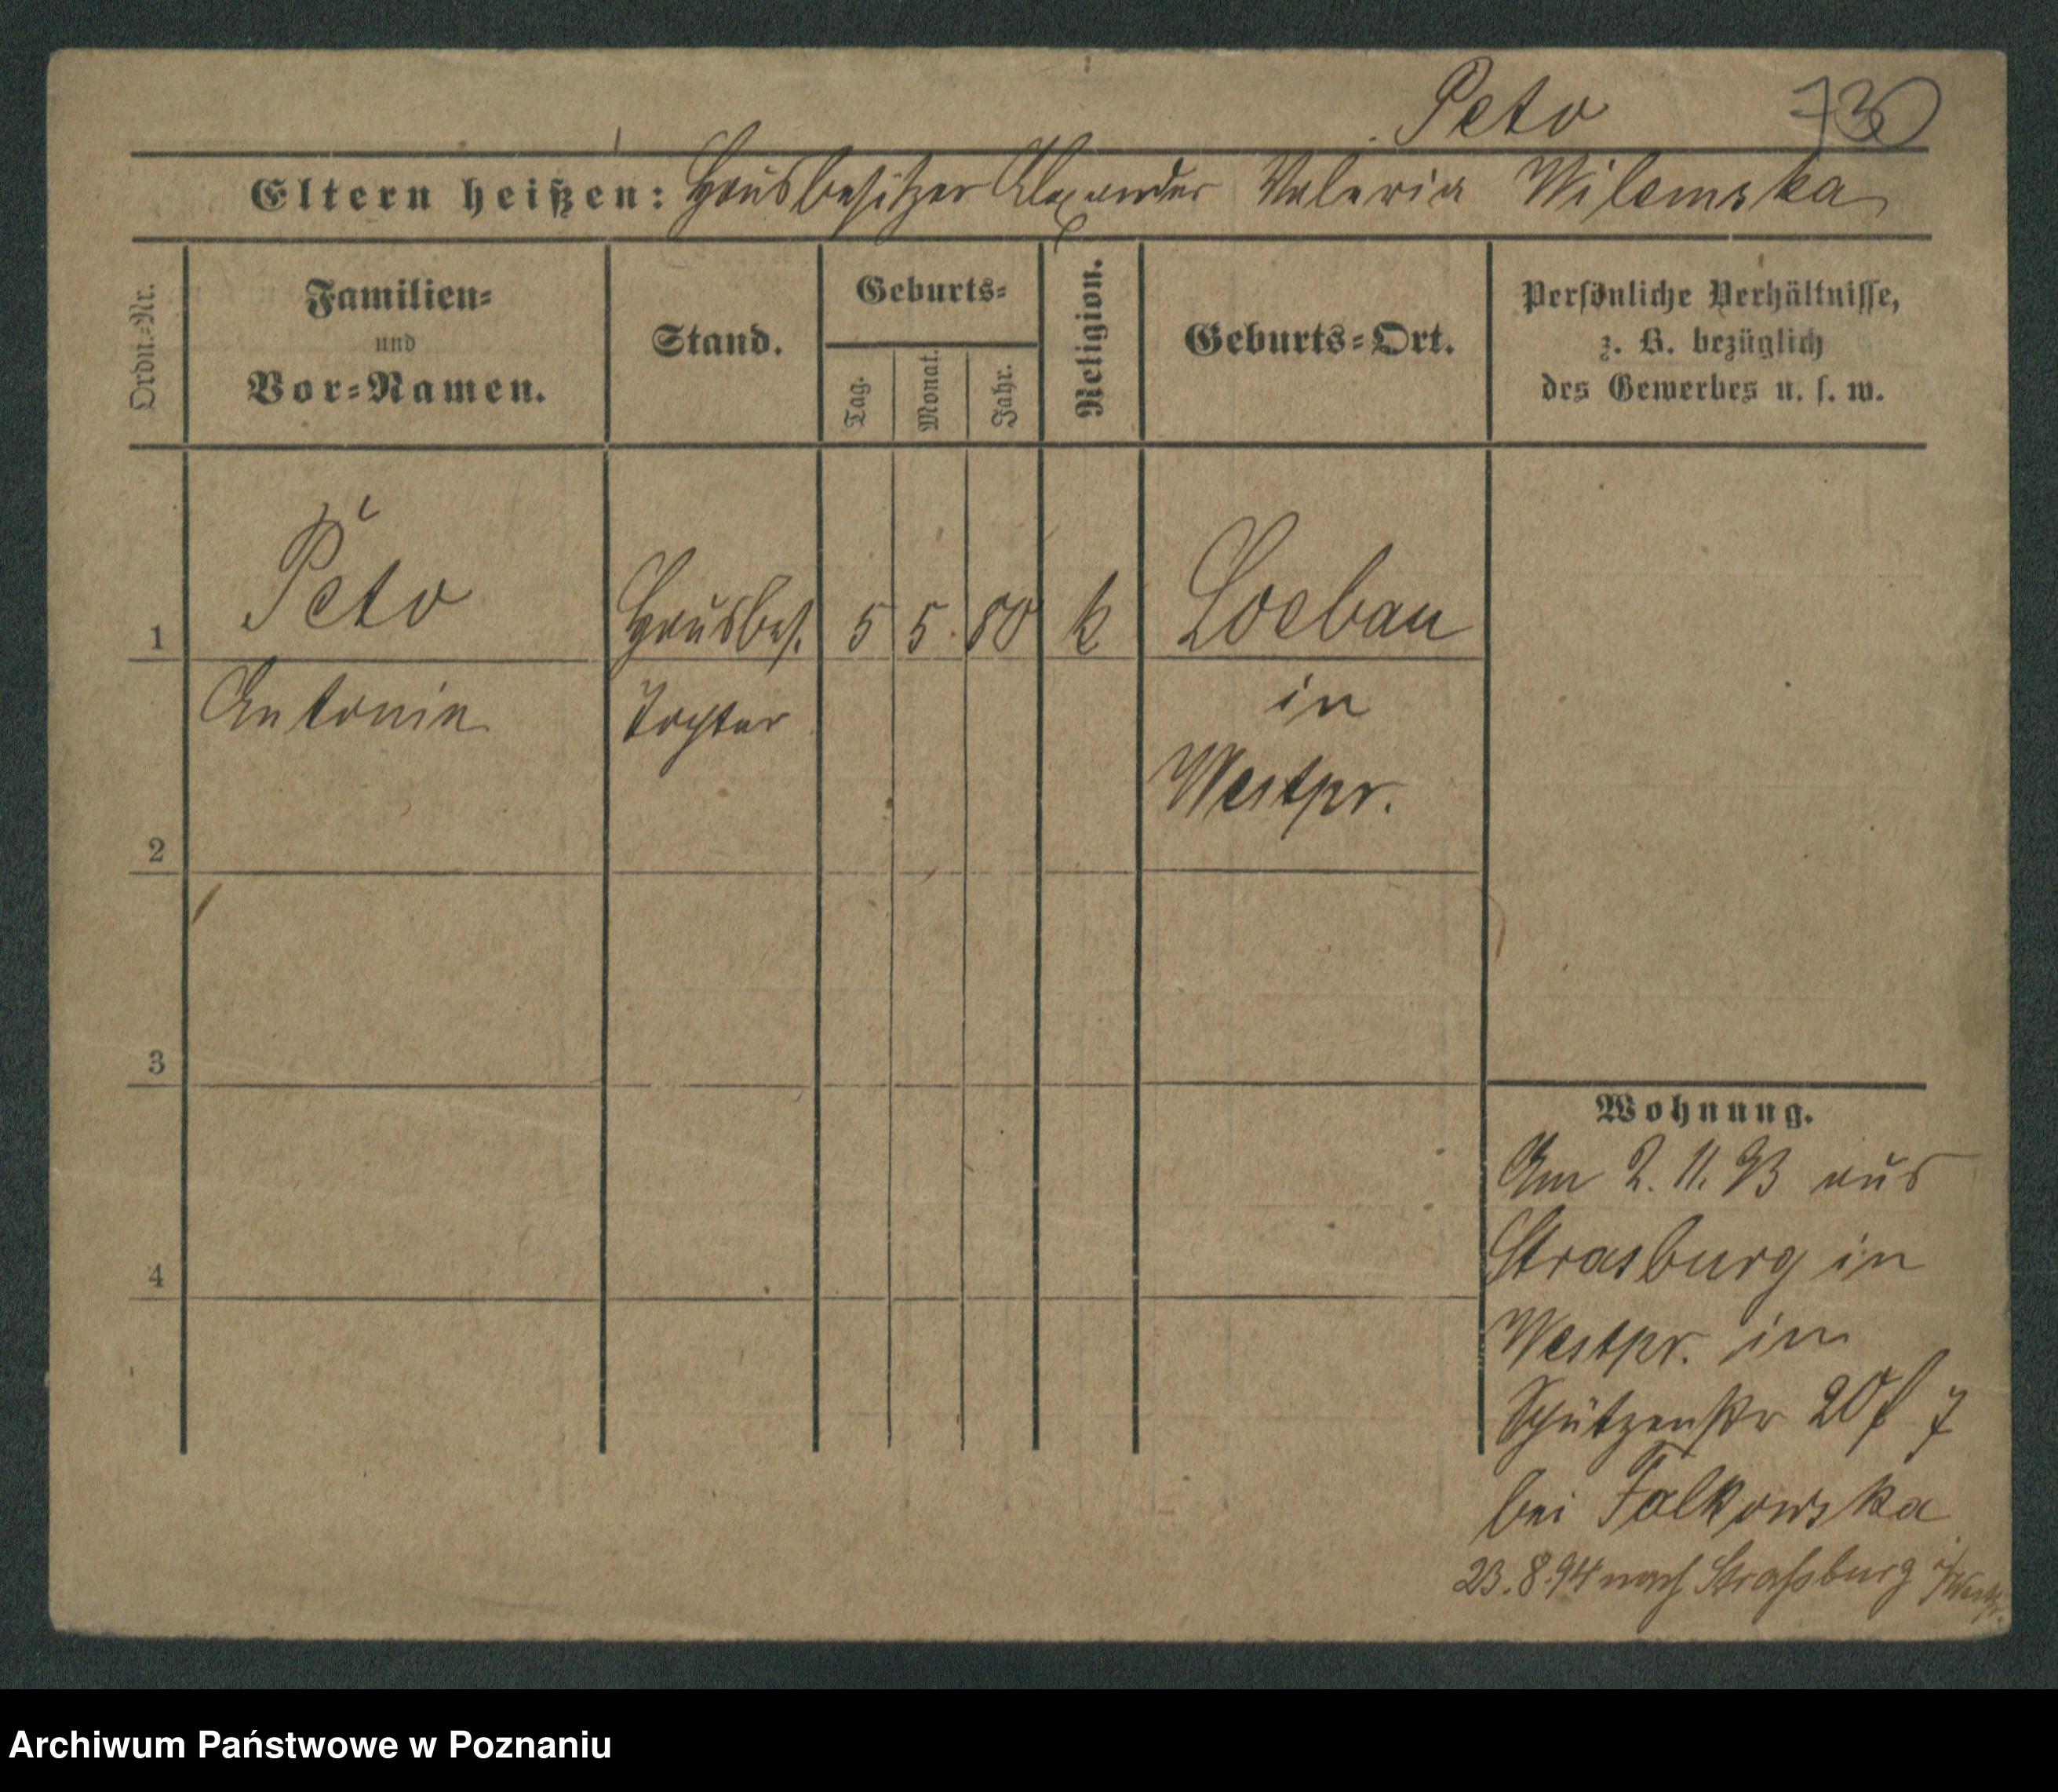 Peto 730
Eltern heißen: Hausbesitzer Alexander Valeria Wilamska
Ordn.-Nr.
Familien-
und
Vor-Namen.
Stand.
Geburts-
Tag.
Monat.
Jahr.
Religion.
Geburts-Ort.
Persönliche Verhältnisse,
z. B. bezüglich
des Gewerbes u. s. w.
1
Peto
Hausbes. 5 5. 80 k Loebau
Antonie Tochter in
Westpr.
2
3
4
Wohnung.
Am 2. 11. 93 aus
Strasburg in
Westpr. im
Schützenstr 20 f 7
bei Falkowska
23. 8. 94 nach Straßburg i/Westpr.
Archiwum Państwowe w Poznaniu